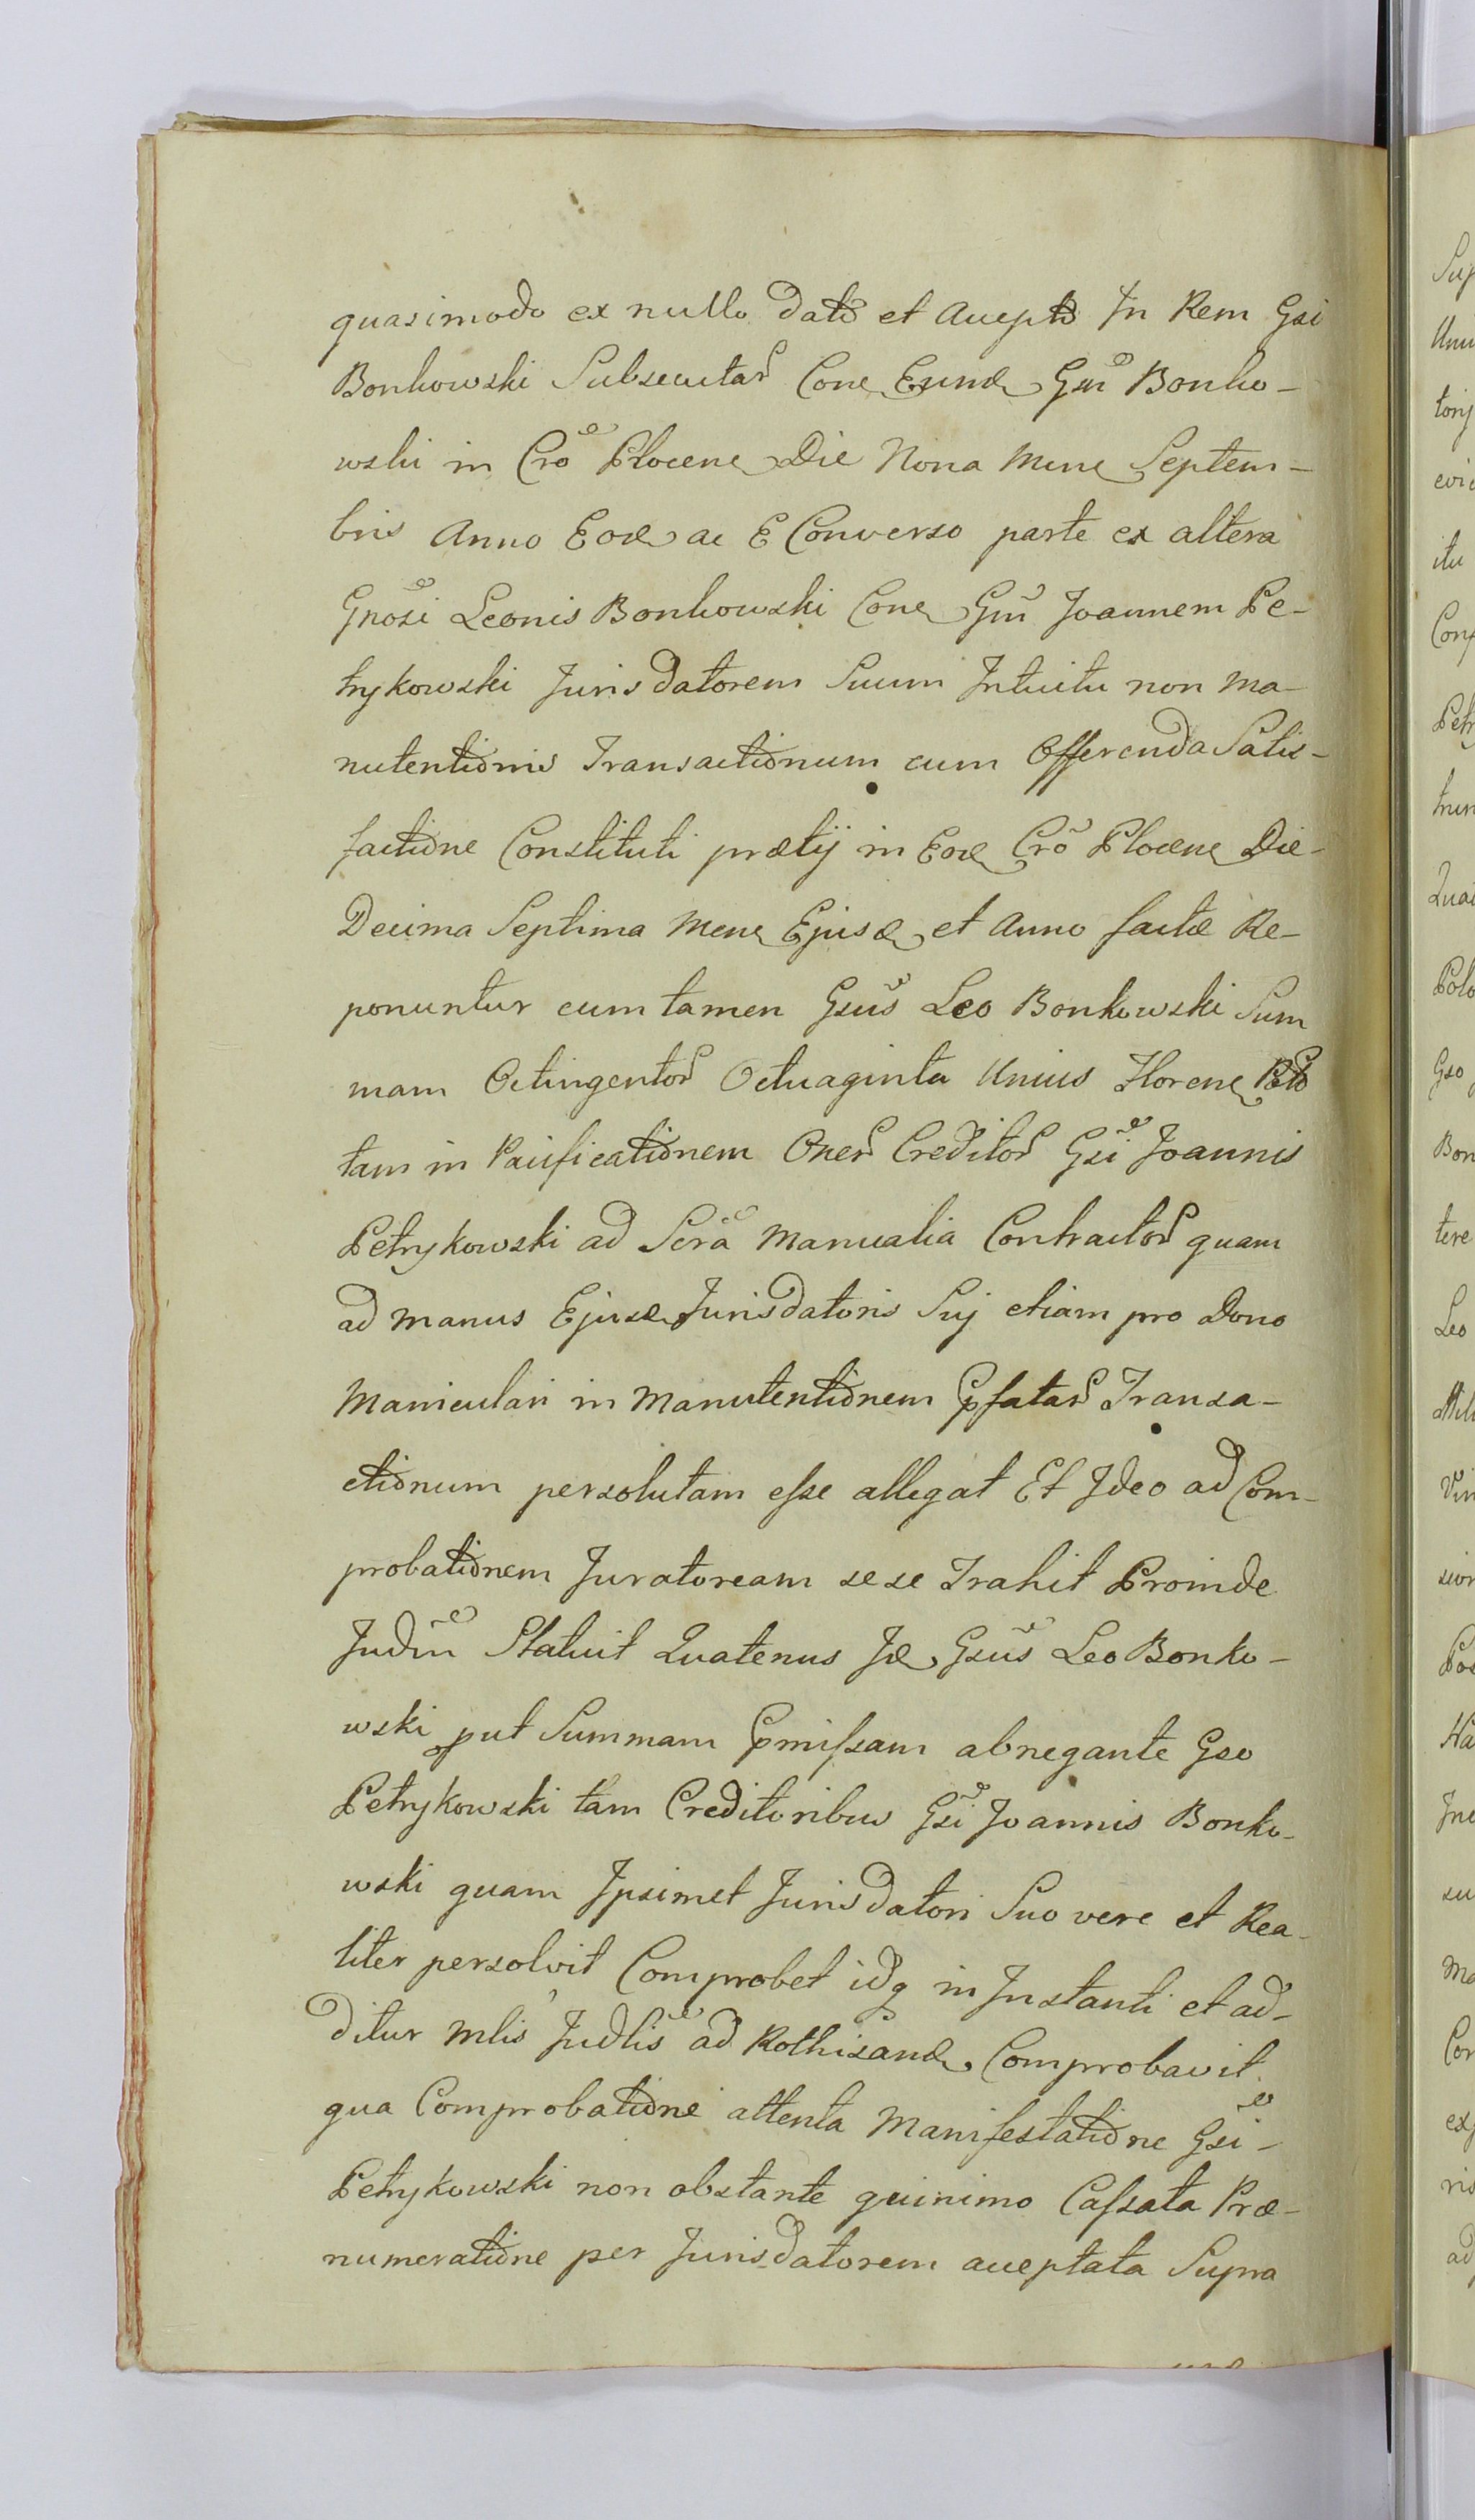 quasimodo ex nullo dato et accepto In Rem Gsi
Bonkowski Subsecutar Cone Eund Gsu Bonko-
wski in Cro Plocen Die Nona Mens Septem-
bris Anno Eod ac E Converso parte ex altera
Gnosi Leonis Bonkowski Con Gsu Joannem Pe-
trykowski Jurisdatorem Suum Intuitu non Ma-
nutentionis Transactionum cum Offerenda Satis-
factione Constituti prætij in Eod Cro Plocen Die-
Decima Septima Mens Ejusd et Anno factæ Re-
ponuntur cum tamen Gsus Leo Bonkowski Sum
mam Octingentor Octuaginta Unius Floren Polo
tam in Pacificationem Oner Creditor Gsi Joannis
Petrykowski ad Scra Manualia Contractor quam
ad manus Ejusd Jurisdatoris Suj etiam pro Dono
Maniculari in Manutentionem Pfatar Transa-
ctionum persolutam esse allegat Et Ideo ad Com-
probationem Juratoream sese Trahit Proinde
Judiu Statuit Quatenus Id Gsus Leo Bonko-
wski put Summam Pmissam abnegante Gso
Petrykowski tam Creditoribus Gsi Joannis Bonko-
wski quam Ipsimet Jurisdatori Suo vere et Rea-
liter persolvit Comprobet idq in Instanti et ad-
ditur Mlis Judlis ad Rothisand Comprobavit
qua Comprobatione attenta Manifestatione Gsi-
Petrykowski non obstante quinimo Cassata Præ-
numeratione per Jurisdatorem acceptata Supra